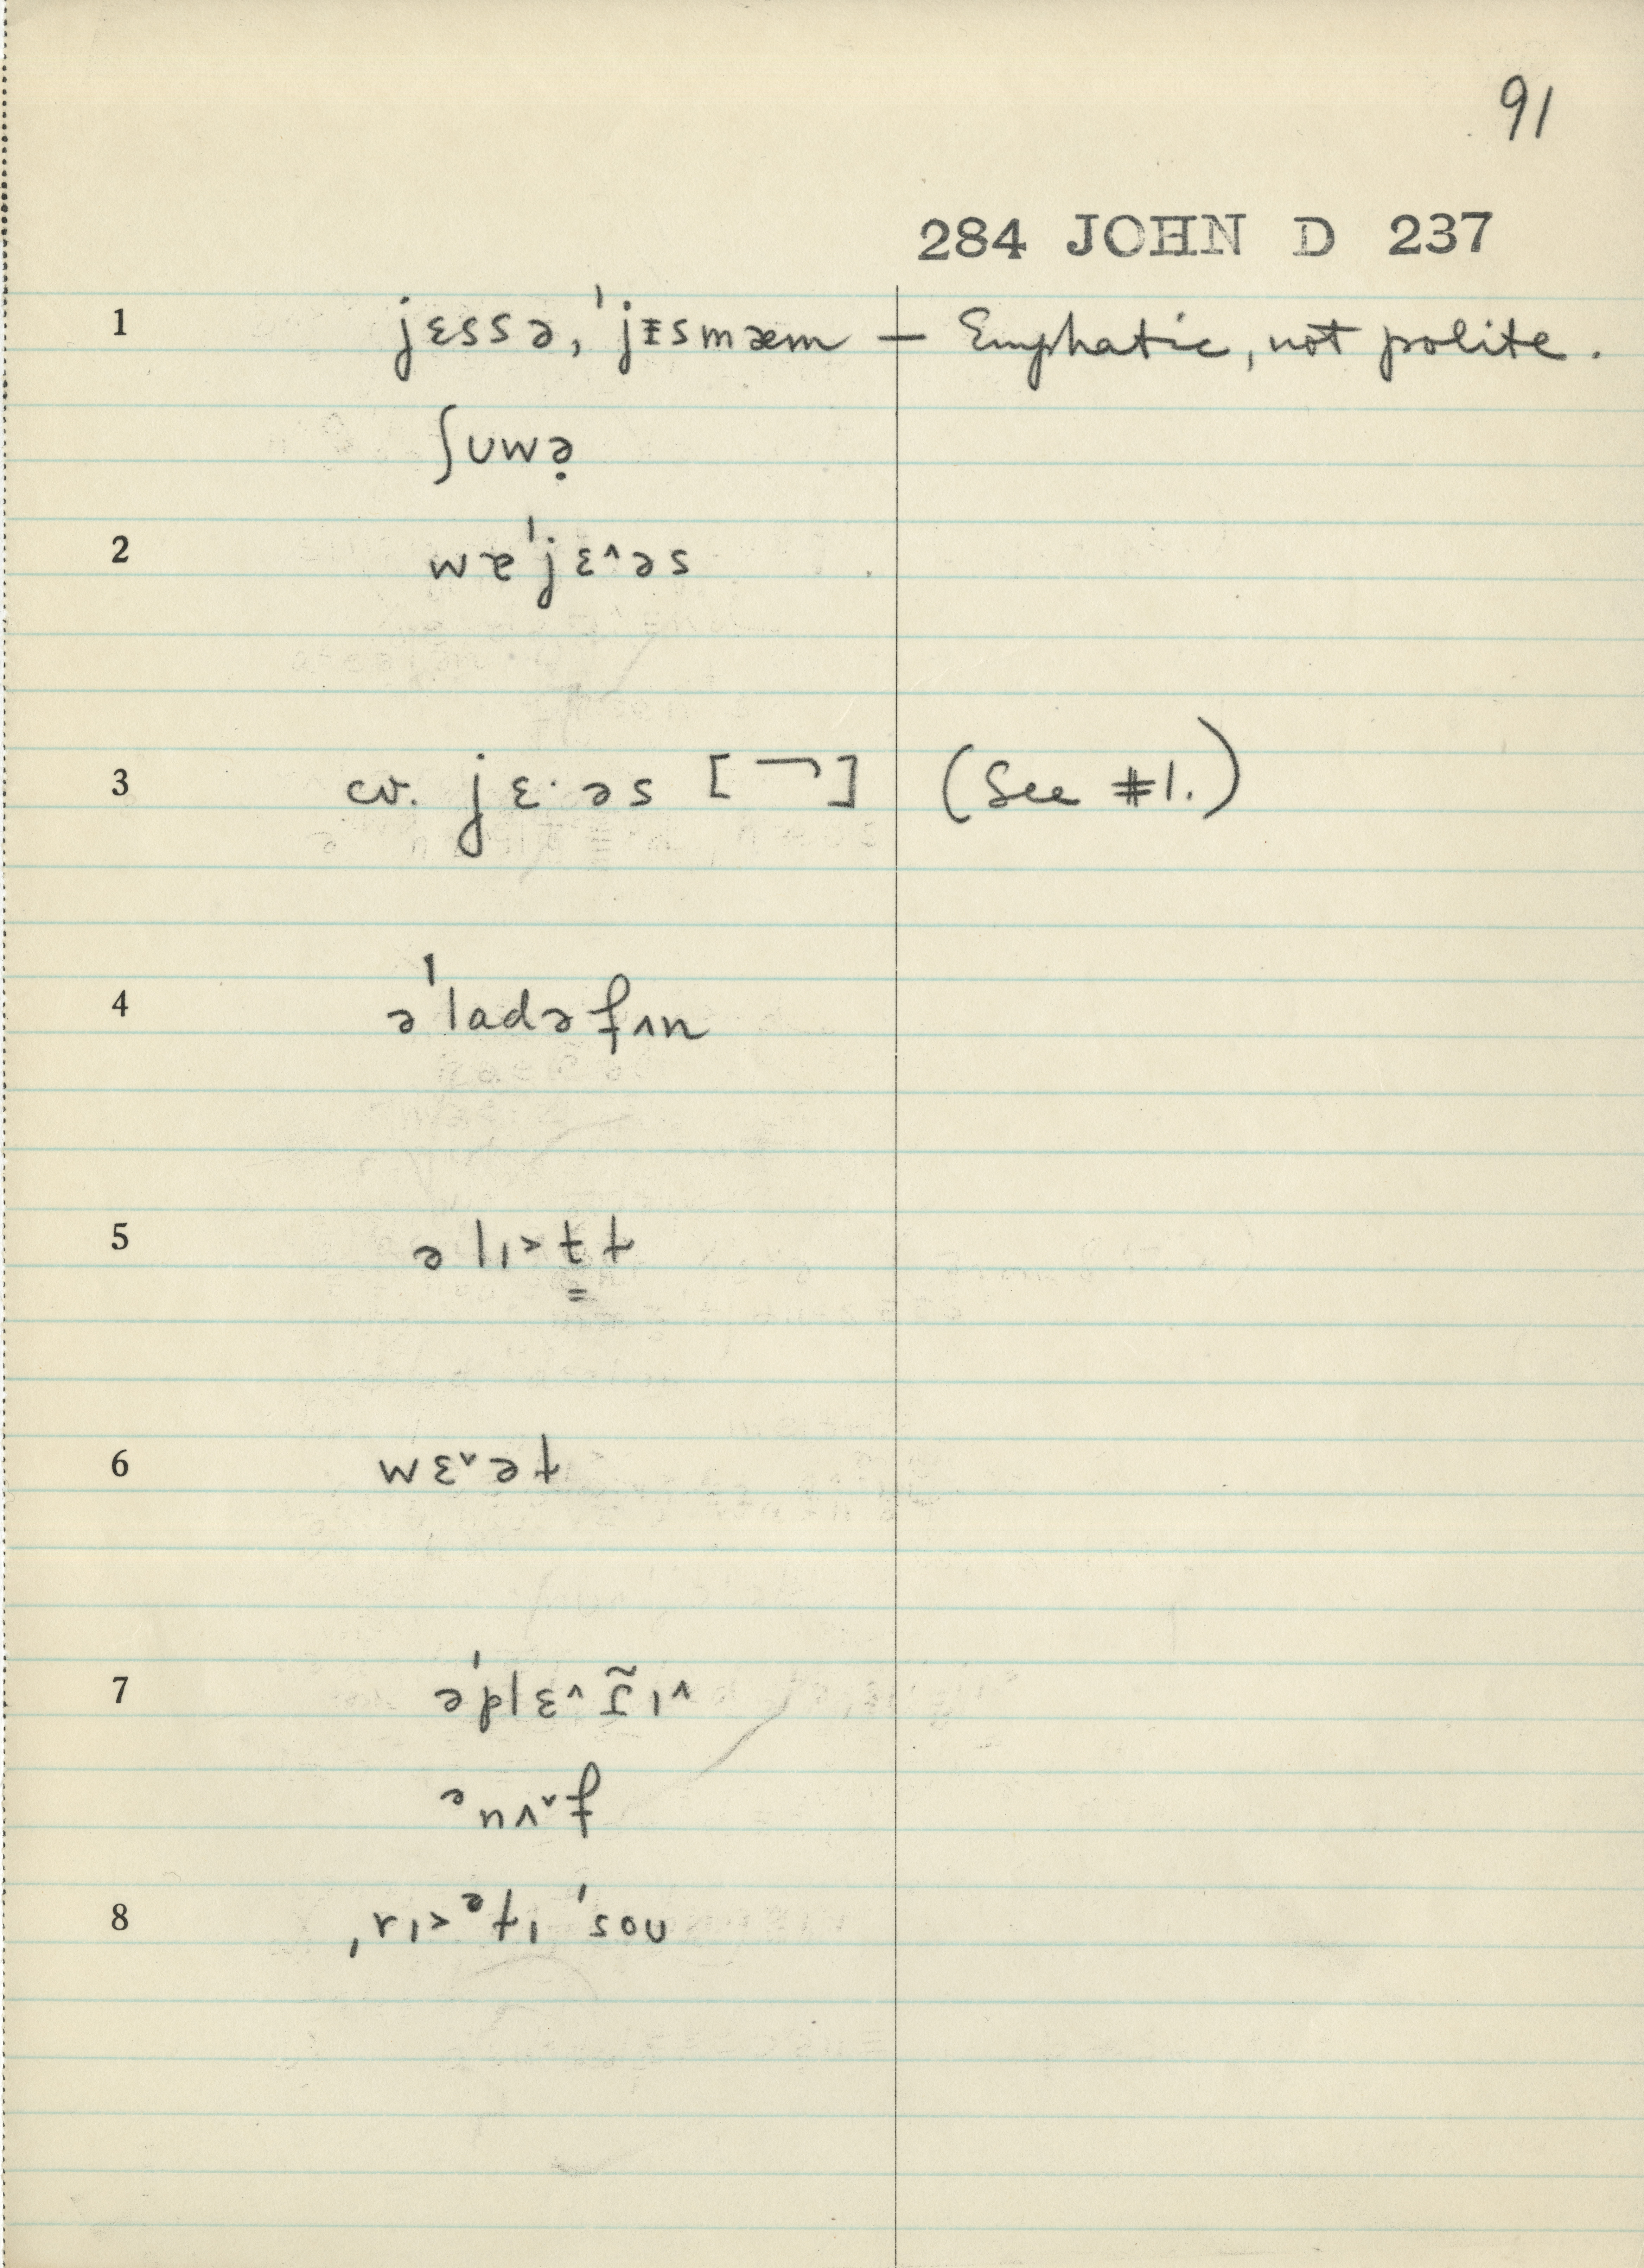 91
284 JOHN D 237
1 jɛssə, ˈjᵻsmæm — Emphatic, not polite.
ʃʊwə̣
2 wɐˈjɛ˄əs
3 cv. jɛ·əs [¬] (See #1.)
4 əˈladəfʌn
5 əlɪ˃t̳t
6 wɛ˅ət
7 əˈplɛ˄ɪ̃ɪ˄
ᵊnʌ˅f
8 ˌrɪ˃ᵊtɪ ˈsoʊ